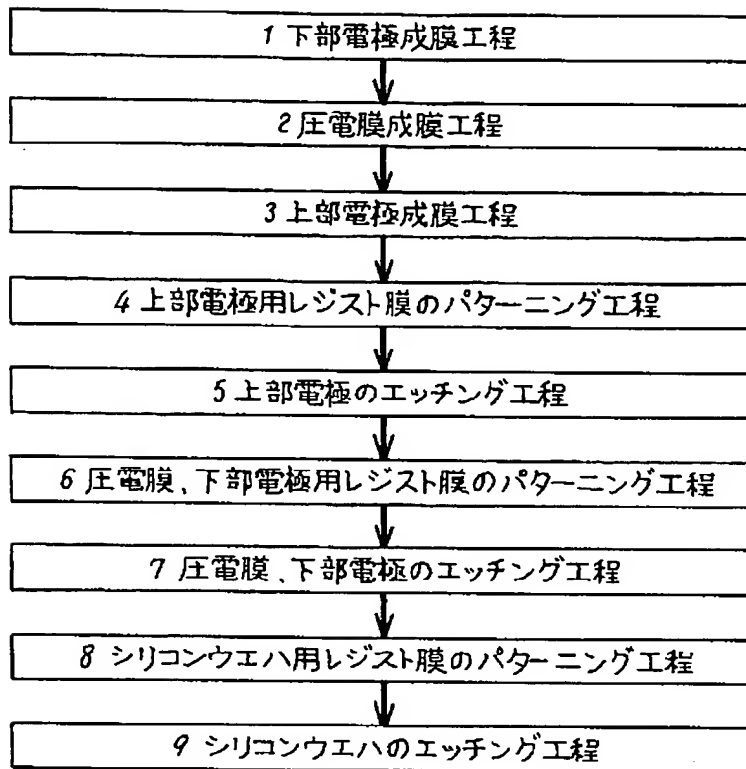 1 下部電極成膜工程
2 圧電膜成膜工程
3 上部電極成膜工程
4 上部電極用レジスト膜のパターニング工程
5 上部電極のエッチング工程
6 圧電膜、下部電極用レジスト膜のパターニング工程
7 圧電膜、下部電極のエッチング工程
8 シリコンウエハ用レジスト膜のパターニング工程
9 シリコンウエハのエッチング工程